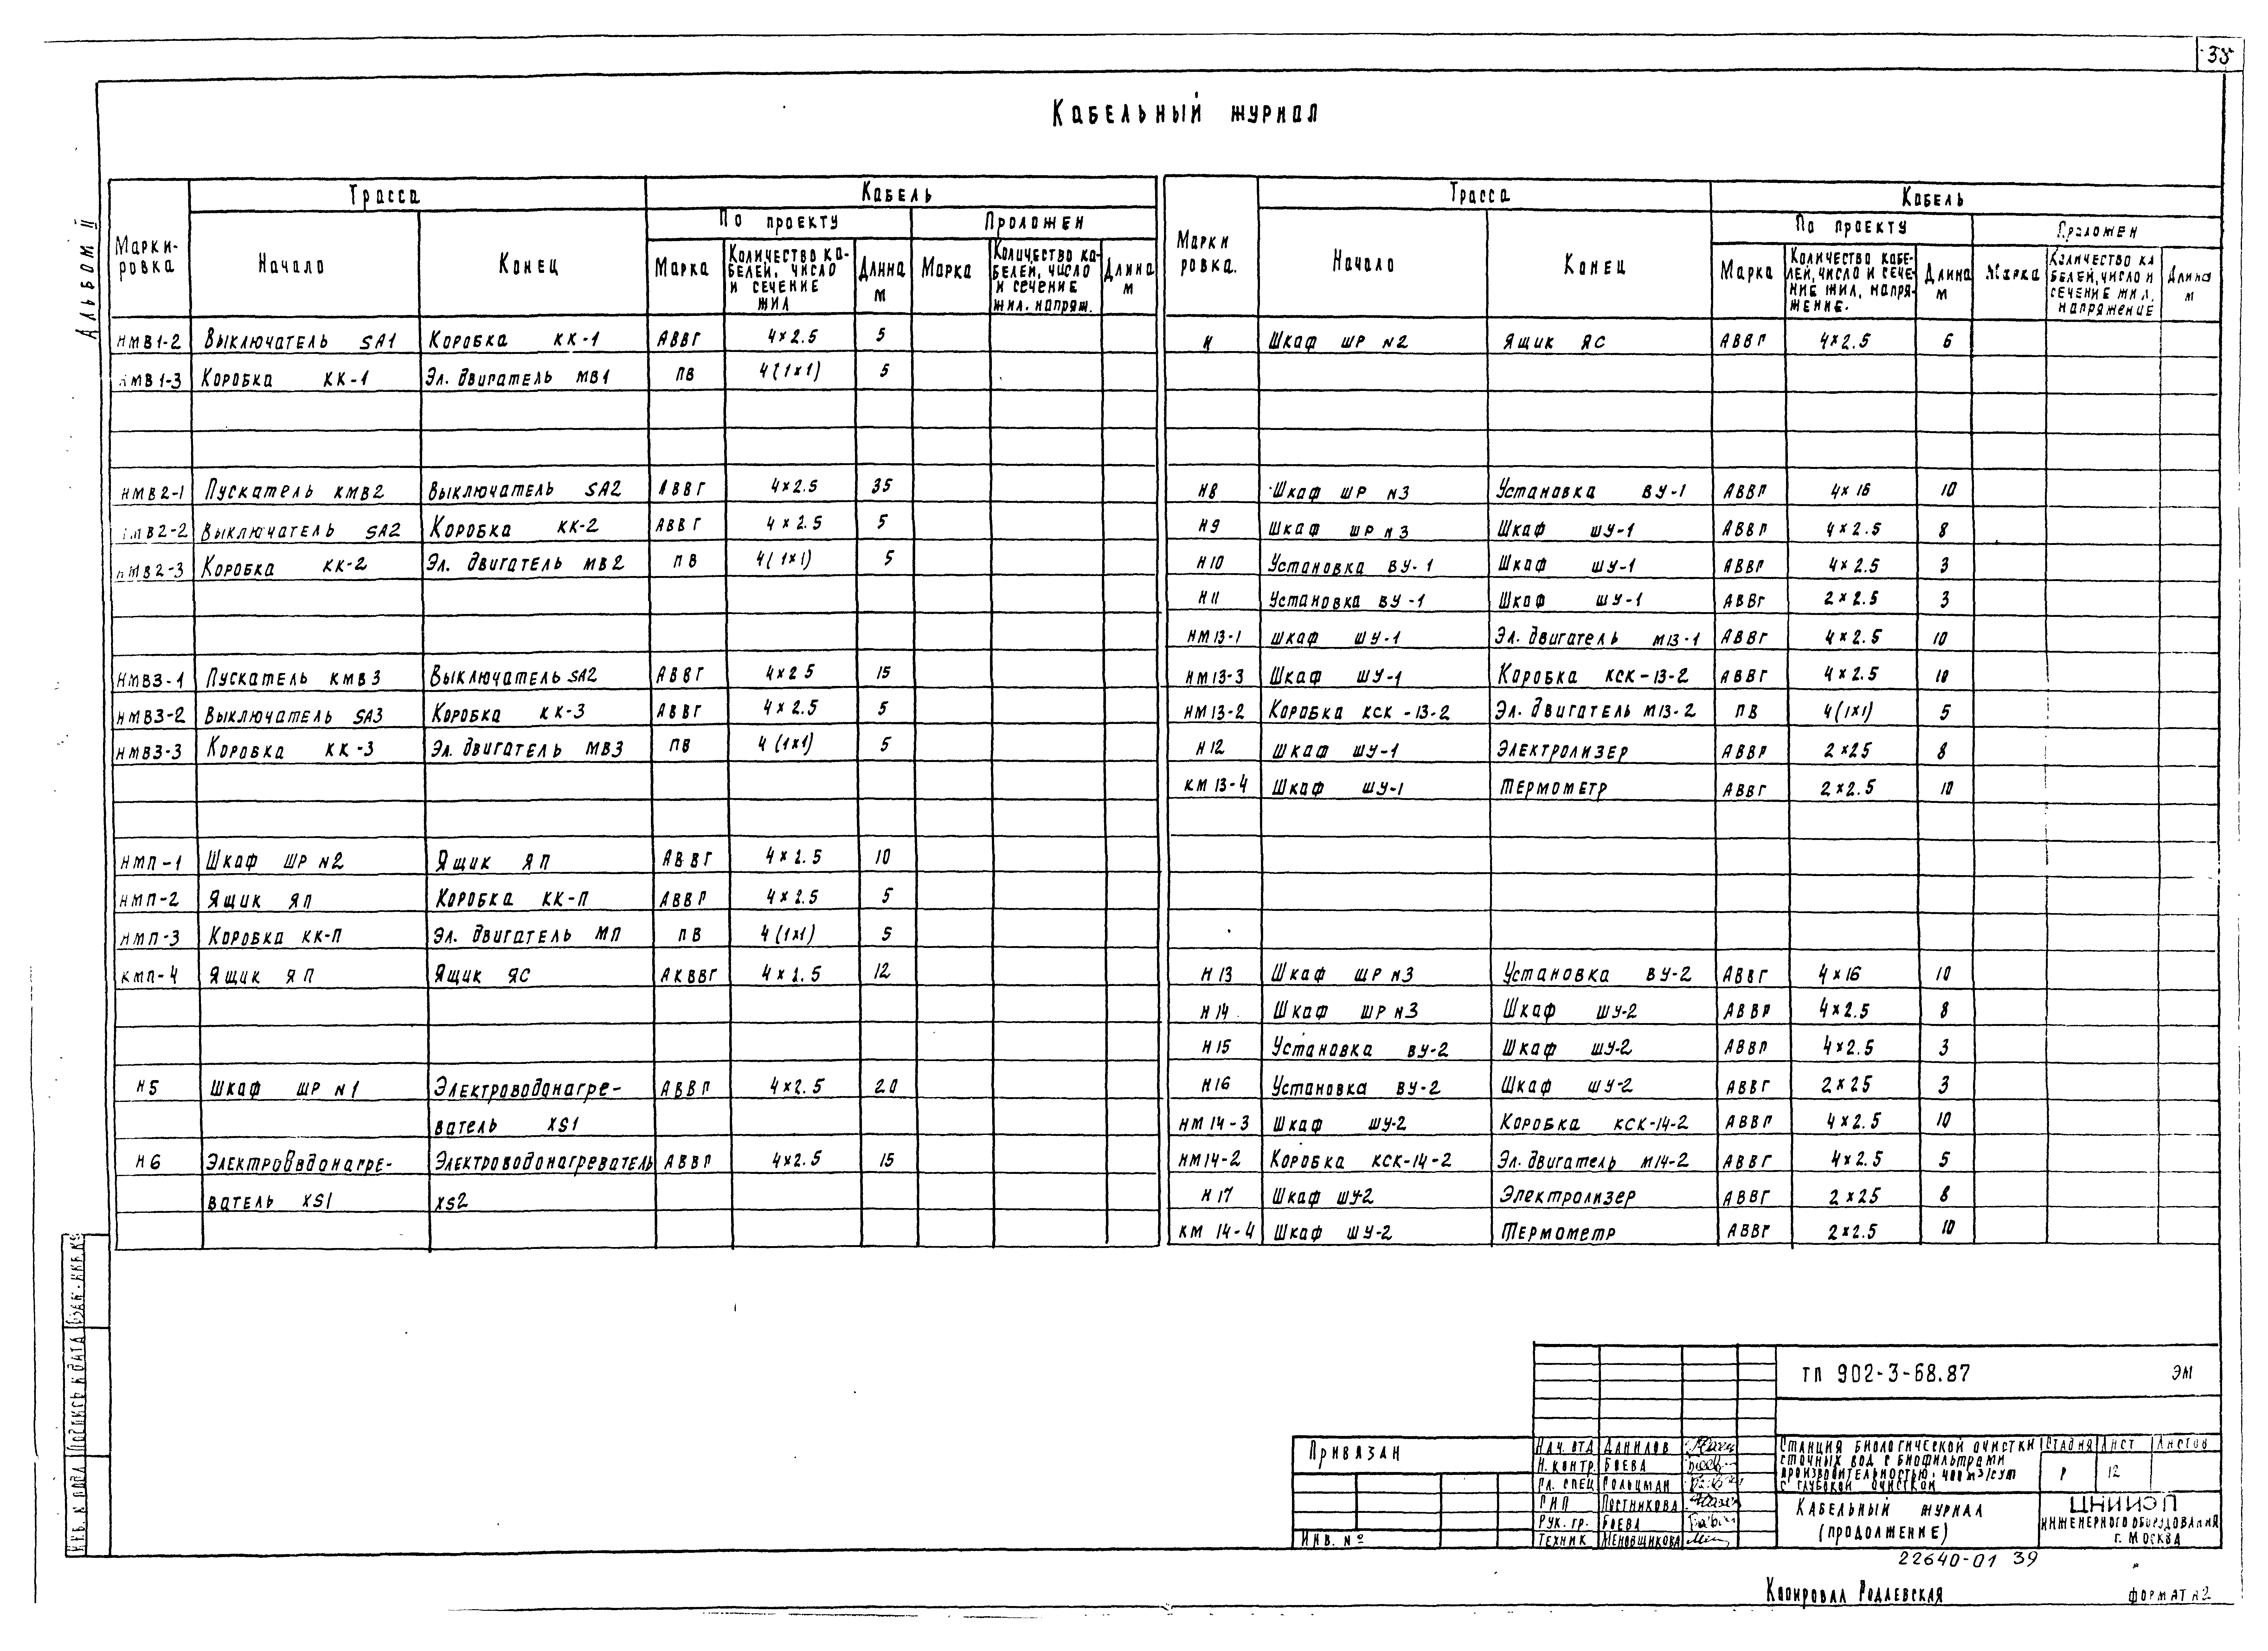 38
Кабельный журнал
Альбом II
Марки-
ровка
Трасса
Кабель
Начало
Конец
По проекту
Проложен
Марка
Количество ка-
белей, число
и сечение
жил
Длина
м
Марка
Количество ка-
белей, число
и сечение
жил. напряж.
Длина
м
НМВ1-2 Выключатель SA1 Коробка КК-1 АВВГ 4×2.5 5
НМВ1-3 Коробка КК-1 Эл. двигатель МВ1 ПВ 4(1×1) 5
НМВ2-1 Пускатель КМВ2 Выключатель SA2 АВВГ 4×2.5 35
НМВ2-2 Выключатель SA2 Коробка КК-2 АВВГ 4×2.5 5
НМВ2-3 Коробка КК-2 Эл. двигатель МВ2 ПВ 4(1×1) 5
НМВ3-1 Пускатель КМВ3 Выключатель SA2 АВВГ 4×2 5 15
НМВ3-2 Выключатель SA3 Коробка КК-3 АВВГ 4×2.5 5
НМВ3-3 Коробка КК-3 Эл. двигатель МВ3 ПВ 4(1×1) 5
НМП-1 Шкаф ШР N2 Ящик ЯП АВВГ 4×2.5 10
НМП-2 Ящик ЯП Коробка КК-П АВВГ 4×2.5 5
НМП-3 Коробка КК-П Эл. двигатель МП ПВ 4(1×1) 5
КМП-4 Ящик ЯП Ящик ЯС АКВВГ 4×2.5 12
Н5 Шкаф ШР N1 Электроводонагре- АВВГ 4×2.5 20
ватель XS1
Н6 Электроводонагре- Электроводонагреватель АВВГ 4×2.5 15
ватель XS1 XS2
Марки
ровка.
Трасса
Кабель
Начало
Конец
По проекту
Проложен
Марка
Количество кабе-
лей, число и сече-
ние жил, напря-
жение.
Длина
м
Марка
Количество ка
белей, число и
сечение жил,
напряжение
Длина
м
Н Шкаф ШР N2 Ящик ЯС АВВГ 4×2.5 6
Н8 Шкаф ШР N3 Установка ВУ-1 АВВГ 4×16 10
Н9 Шкаф ШР N3 Шкаф ШУ-1 АВВГ 4×2.5 8
Н10 Установка ВУ-1 Шкаф ШУ-1 АВВГ 4×2.5 3
Н11 Установка ВУ-1 Шкаф ШУ-1 АВВГ 2×2.5 3
НМ13-1 Шкаф ШУ-1 Эл. двигатель М13-1 АВВГ 4×2.5 10
НМ13-3 Шкаф ШУ-1 Коробка КСК-13-2 АВВГ 4×2.5 10
НМ13-2 Коробка КСК-13-2 Эл. двигатель М13-2 ПВ 4(1×1) 5
Н12 Шкаф ШУ-1 Электролизер АВВГ 2×25 8
КМ13-4 Шкаф ШУ-1 Термометр АВВГ 2×2.5 10
Н13 Шкаф ШР N3 Установка ВУ-2 АВВГ 4×16 10
Н14 Шкаф ШР N3 Шкаф ШУ-2 АВВГ 4×2.5 8
Н15 Установка ВУ-2 Шкаф ШУ-2 АВВГ 4×2.5 3
Н16 Установка ВУ-2 Шкаф ШУ-2 АВВГ 2×25 3
НМ14-3 Шкаф ШУ-2 Коробка КСК-14-2 АВВГ 4×2.5 10
НМ14-2 Коробка КСК-14-2 Эл. двигатель М14-2 АВВГ 4×2.5 5
Н17 Шкаф ШУ-2 Электролизер АВВГ 2×25 8
КМ 14-4 Шкаф ШУ-2 Термометр АВВГ 2×2.5 10
Инв. N подл Подпись и дата Взам. инв. N
Привязан
Инв. №
Нач. отд Данилов
Н. контр. Боева
Гл. спец Гольцман
ГИП Постникова
Рук. гр. Боева
Техник Меновщикова
ТП 902-3-68.87 ЭМ
Станция биологической очистки
сточных вод с биофильтрами
производительностью 400 м3/сут
с глубокой очисткой
Стадия Лист Листов
Р 12
Кабельный журнал
(продолжение)
ЦНИИЭП
инженерного оборудования
г. Москва
22640-01 39
Копировал Родлевская
Формат А2